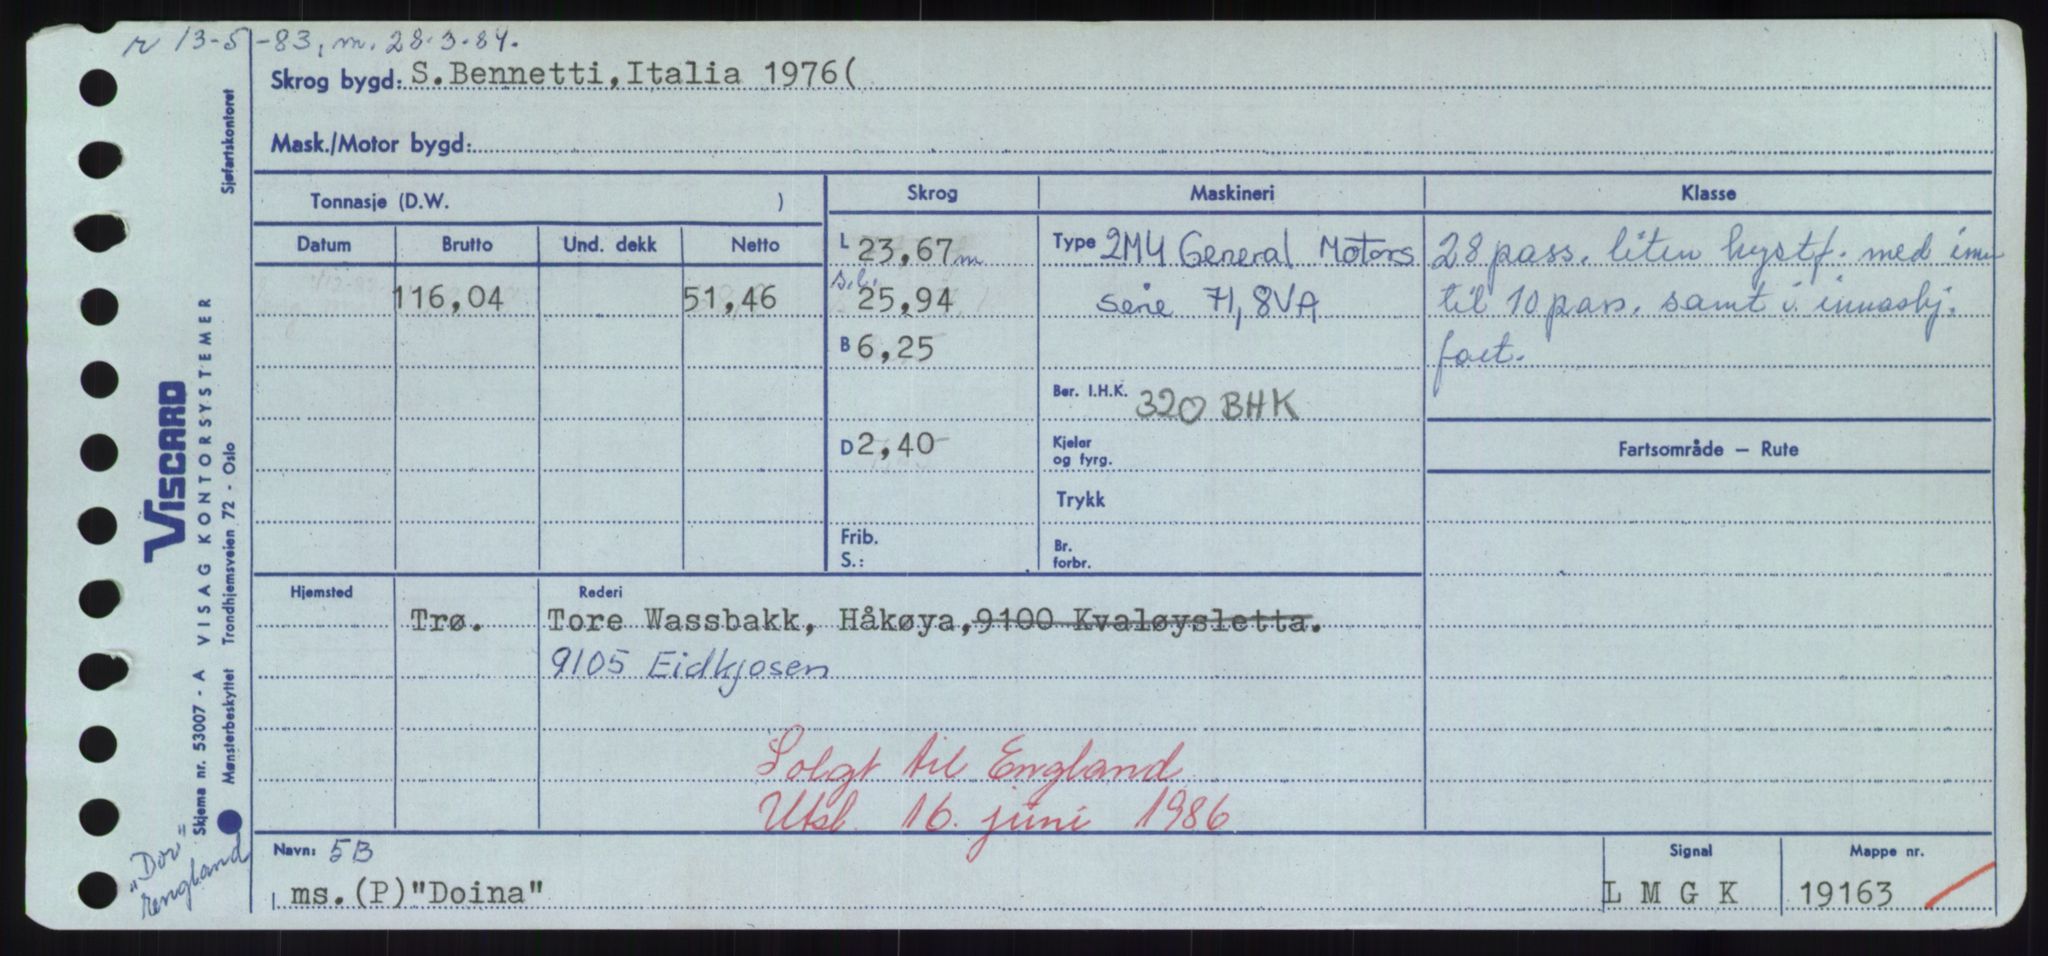 r 13-5-83, m. 28.3.84.
Skrog bygd: S.Bennetti,Italia 1976(
Mask./Motor bygd:
Tonnasje (D.W. )
Skrog
Maskineri
Klasse
Datum Brutto Und. dekk Netto
116,04 51,46
L 23,67 m
s.l. 25,94
B 6,25
D 2,40
Frib.
S.:
Type 2M4 General Motors
serie 71, 8VA
Ber. I.H.K. 320 BHK
Kjeler
og fyrg.
Trykk
Br.
forbr.
28 pass. liten kystf. med
til 10 pass. samt i
fart.
Fartsområde — Rute
Hjemsted Rederi
Trø. Tore Wassbakk, Håkøya, 9100 Kvaløysletta.
9105 Eidkjosen
Solgt til England
Utsl. 16. juni 1986
Navn: 5B
ms.(P)"Doina"
Signal
L M G K
Mappe nr.
19163
VISCARD
Skjema nr. 53007 - A VISAG KONTORSYSTEMER
Mønsterbeskyttet Trondhjemsveien 72 - Oslo Sjøfartskontoret
England